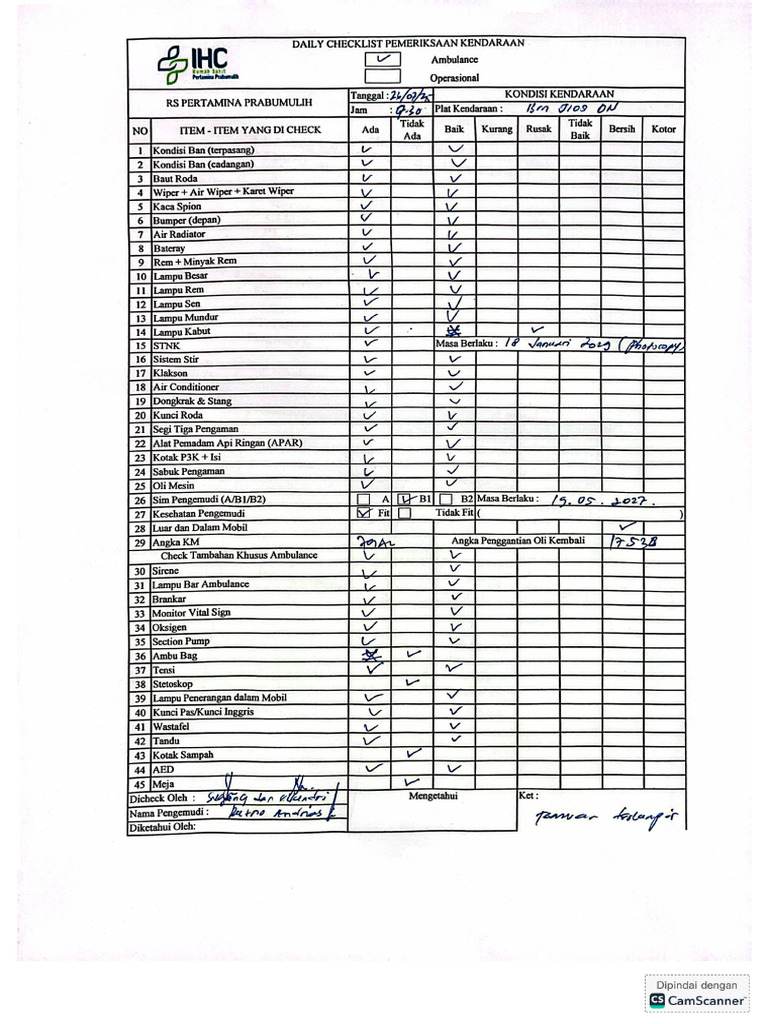 DAILY CHECKLIST PEMERIKSAAN KENDARAAN
IHC
Rumah Sakit
Pertamina Prabumulih
✓ Ambulance
Operasional
RS PERTAMINA PRABUMULIH
Tanggal : KONDISI KENDARAAN
Jam : 9.30 Plat Kendaraan : BM
NO ITEM - ITEM YANG DI CHECK Ada Tidak Ada Baik Kurang Rusak Tidak Baik Bersih Kotor
1 Kondisi Ban (terpasang) ✓ ✓
2 Kondisi Ban (cadangan) ✓ ✓
3 Baut Roda ✓ ✓
4 Wiper + Air Wiper + Karet Wiper ✓ ✓
5 Kaca Spion ✓ ✓
6 Bumper (depan) ✓ ✓
7 Air Radiator ✓ ✓
8 Bateray ✓ ✓
9 Rem + Minyak Rem ✓ ✓
10 Lampu Besar ✓ ✓
11 Lampu Rem ✓ ✓
12 Lampu Sen ✓ ✓
13 Lampu Mundur ✓ ✓
14 Lampu Kabut ✓ ✓
15 STNK ✓ Masa Berlaku : 18 Januari 2029 (Photocopy)
16 Sistem Stir ✓ ✓
17 Klakson ✓ ✓
18 Air Conditioner ✓ ✓
19 Dongkrak & Stang ✓ ✓
20 Kunci Roda ✓ ✓
21 Segi Tiga Pengaman ✓ ✓
22 Alat Pemadam Api Ringan (APAR) ✓ ✓
23 Kotak P3K + Isi ✓ ✓
24 Sabuk Pengaman ✓ ✓
25 Oli Mesin ✓ ✓
26 Sim Pengemudi (A/B1/B2) A ✓ B1 B2 Masa Berlaku : 19.05.2027.
27 Kesehatan Pengemudi ✓ Fit Tidak Fit ( )
28 Luar dan Dalam Mobil ✓
29 Angka KM Angka Penggantian Oli Kembali
Check Tambahan Khusus Ambulance ✓ ✓
30 Sirene ✓ ✓
31 Lampu Bar Ambulance ✓ ✓
32 Brankar ✓ ✓
33 Monitor Vital Sign ✓ ✓
34 Oksigen ✓ ✓
35 Section Pump ✓ ✓
36 Ambu Bag ✓
37 Tensi ✓ ✓
38 Stetoskop ✓
39 Lampu Penerangan dalam Mobil ✓ ✓
40 Kunci Pas/Kunci Inggris ✓ ✓
41 Wastafel ✓ ✓
42 Tandu ✓ ✓
43 Kotak Sampah ✓
44 AED ✓ ✓
45 Meja ✓
Dicheck Oleh : dan Mengetahui Ket :
Nama Pengemudi :
Diketahui Oleh:
Dipindai dengan
CS CamScanner